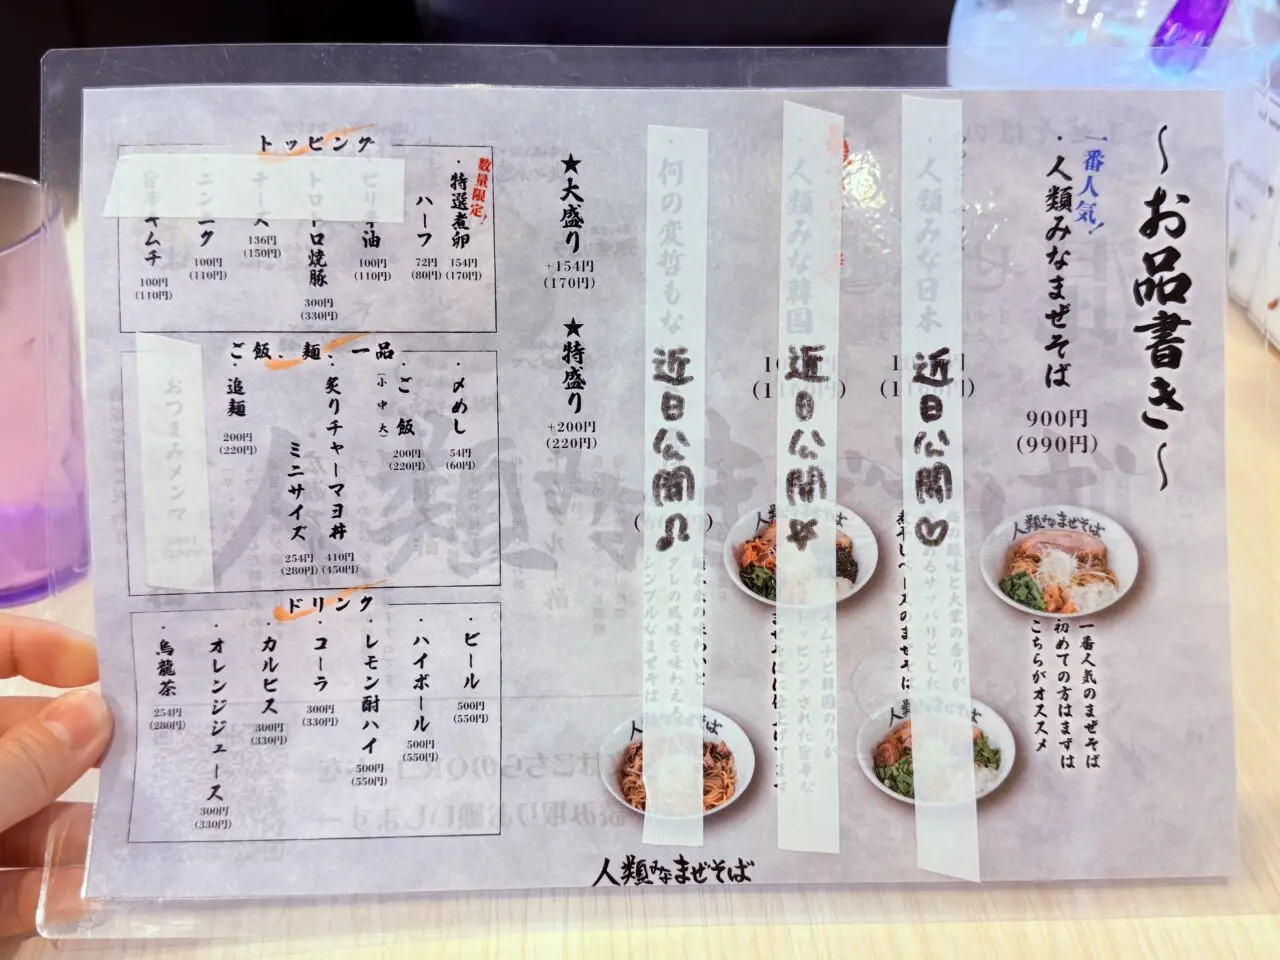 ~お品書き~
一番人気!
・人類みなまぜそば
900円
(990円)
人類みなまぜそば
一番人気のまぜそば
初めての方はまずは
こちらがオススメ
・人類みな日本
近日公開♡
人類みな韓国
近日公開☆
何の変哲もな
近日公開♫
シンプルなまぜそば
★大盛り
+154円
(170円)
★特盛り
+200円
(220円)
トッピング
数量限定!
・特選煮卵
154円
(170円)
ハーフ
72円
(80円)
・ピリ辛油
100円
(110円)
・トロトロ焼豚
300円
(330円)
・チーズ
136円
(150円)
・ニンニク
100円
(110円)
キムチ
100円
(110円)
ご飯、麺、一品
・〆めし
54円
(60円)
・ご飯
(小中大)
200円
(220円)
・炙りチャーマヨ丼
410円
(450円)
ミニサイズ
254円
(280円)
・追麺
200円
(220円)
・おつまみメンマ
ドリンク
・ビール
500円
(550円)
・ハイボール
500円
(550円)
・レモン酎ハイ
500円
(550円)
・コーラ
300円
(330円)
・カルピス
300円
(330円)
・オレンジジュース
300円
(330円)
・烏龍茶
254円
(280円)
人類みなまぜそば